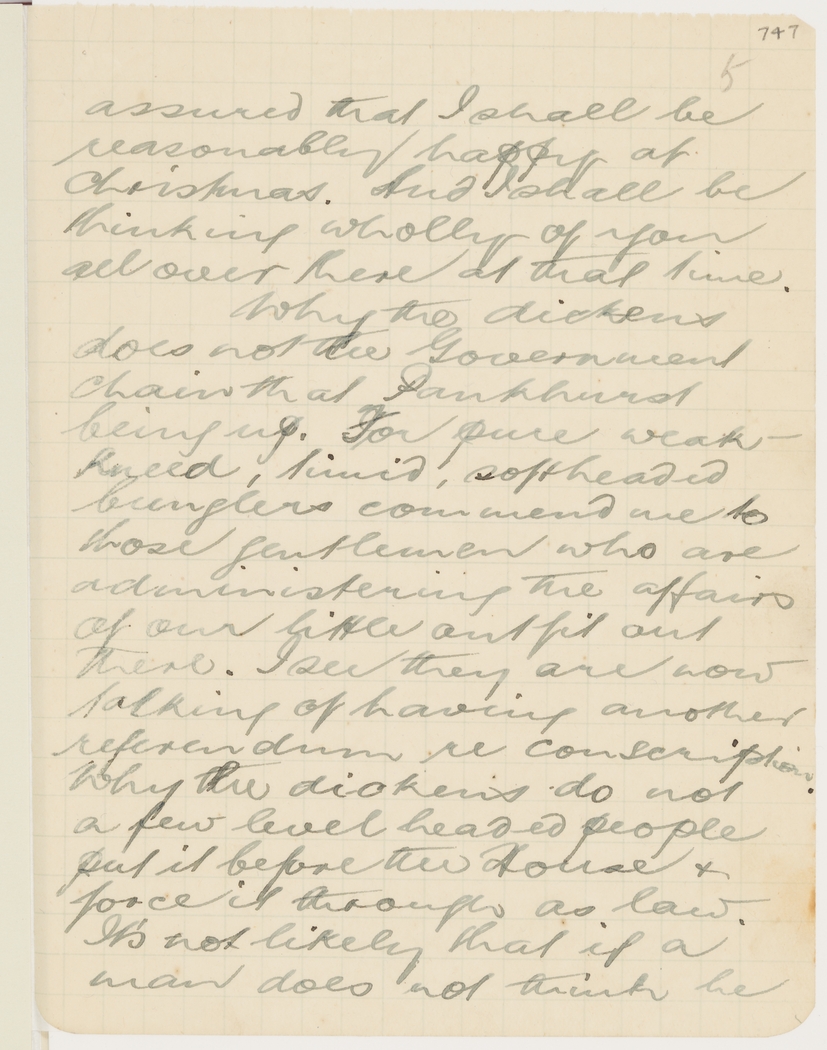 747
5
assured that I shall be
reasonably happy at
Christmas. And I shall be
thinking wholly of you
all over there at that time.
Why the dickens
does not the Government
chain that Pankhurst
being up. For pure weak-
kneed, timid, softheaded
bunglers commend me to
those gentlemen who are
administering the affairs
of our little outfit out
there. I see they are now
talking of having another
referendum re conscription.
Why the dickens do not
a few level headed people
put it before the House &
force it through as law.
It's not likely that if a
man does not think he